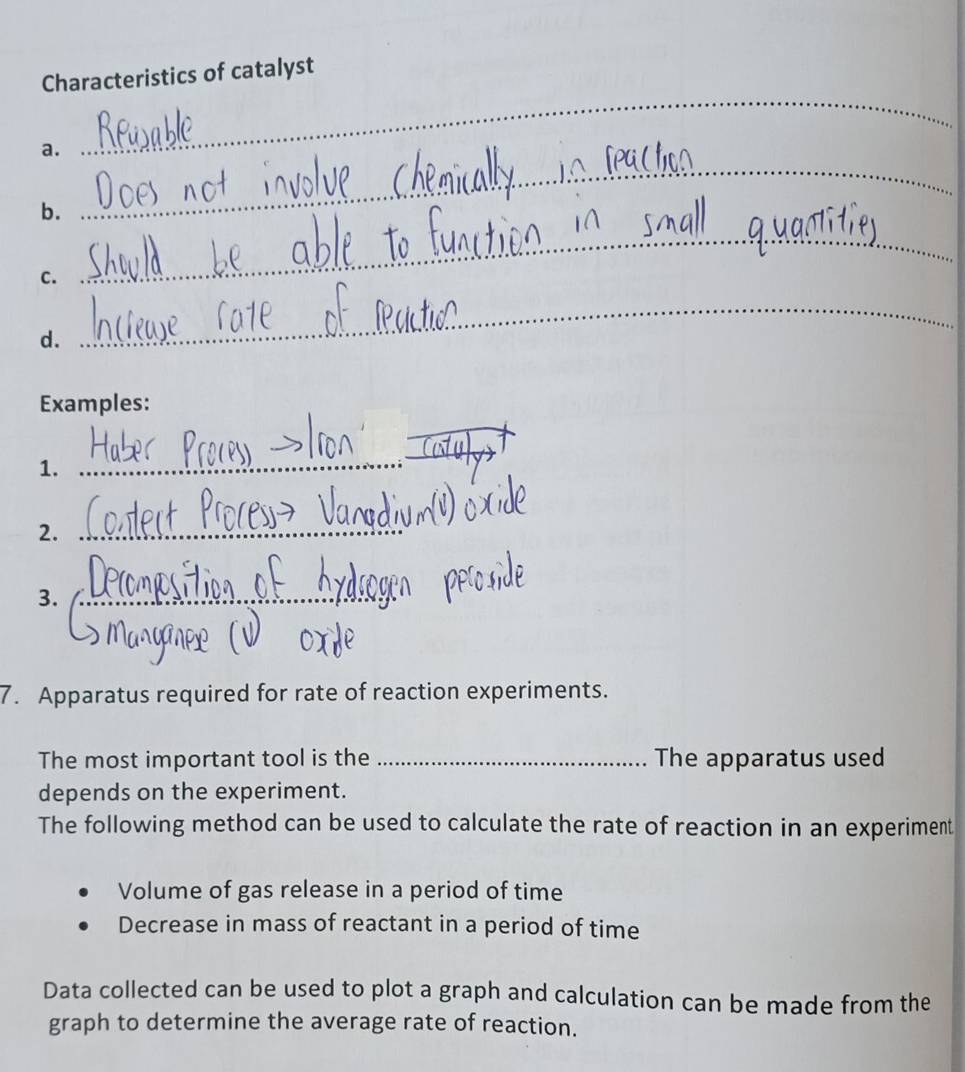 Characteristics of catalyst
a. Reusable
b. Does not involve chemically in reaction
c. Should be able to function in small quantities
d. Increase rate of reaction
Examples:
1. Haber Process → Iron catalyst
2. Contect Process → Vanadium(V) oxide
3. Decomposition of hydrogen peroxide
↳ Manganese (V) oxide
7. Apparatus required for rate of reaction experiments.
The most important tool is the ........................................ The apparatus used
depends on the experiment.
The following method can be used to calculate the rate of reaction in an experiment
• Volume of gas release in a period of time
• Decrease in mass of reactant in a period of time
Data collected can be used to plot a graph and calculation can be made from the
graph to determine the average rate of reaction.